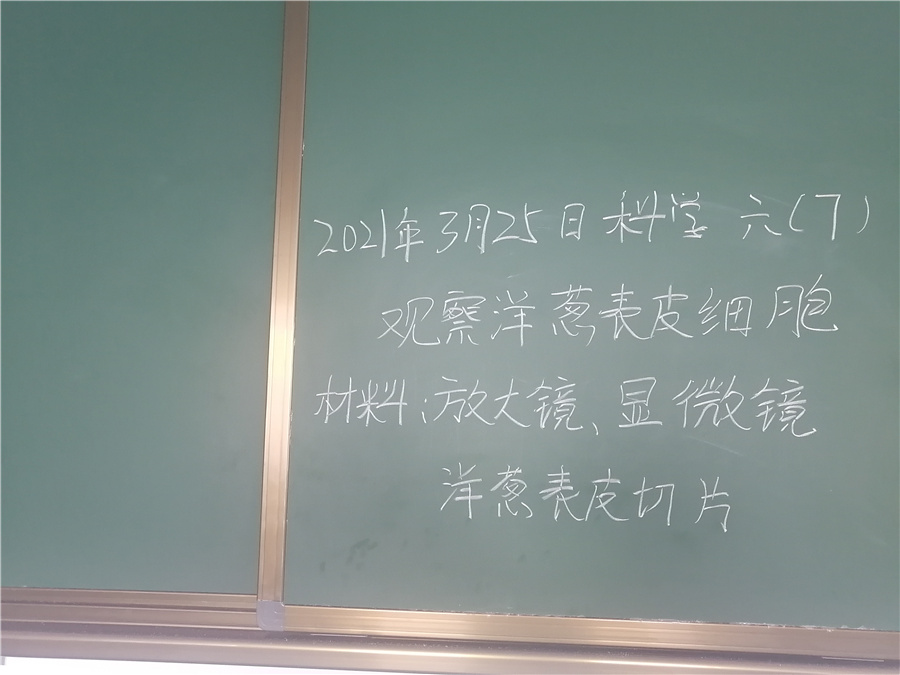 2021年3月25日 科学 六(7)
观察洋葱表皮细胞
材料:放大镜、显微镜
洋葱表皮切片